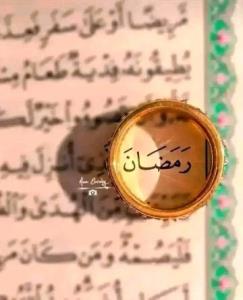 مَّرِيضًا أَوْ عَلَىٰ سَفَرٍ فَعِدَّ
يُطِيقُونَهُ فِدْيَةٌ طَعَامُ مِسْ
خَيْرٌ لَّ
رَمَضَانَ ذِي أُنزِلَ فِيهِ
مِّنَ الْهُدَىٰ وَال
فَلْيَصُمْهُ وَمَن كَانَ مَر